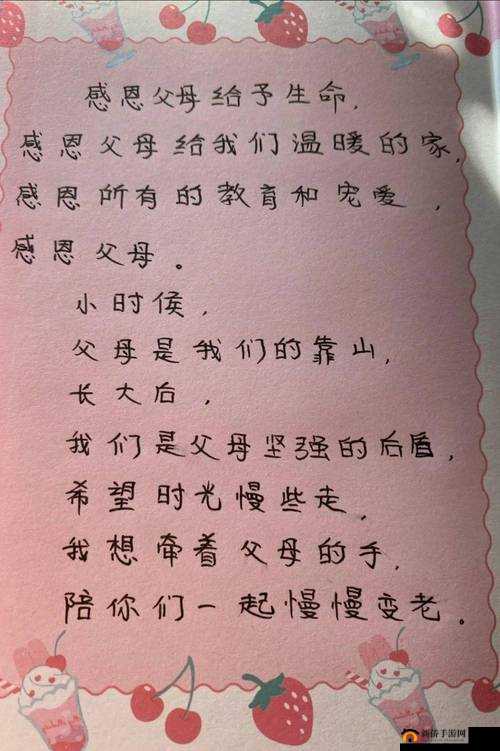 感恩父母给予生命,
感恩父母给我们温暖的家,
感恩所有的教育和宠爱,
感恩父母。
小时候,
父母是我们的靠山,
长大后,
我们是父母坚强的后盾,
希望时光慢些走,
我想牵着父母的手,
陪你们一起慢慢变老。
新侨手游网